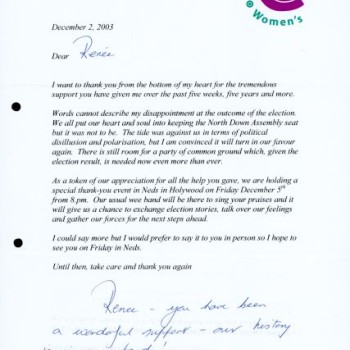 Women's
December 2, 2003
Dear Renée
I want to thank you from the bottom of my heart for the tremendous
support you have given me over the past five weeks, five years and more.
Words cannot describe my disappointment at the outcome of the election.
We all put our heart and soul into keeping the North Down Assembly seat
but it was not to be. The tide was against us in terms of political
disillusion and polarisation, but I am convinced it will turn in our favour
again. There is still room for a party of common ground which, given the
election result, is needed now even more than ever.
As a token of our appreciation for all the help you gave, we are holding a
special thank-you event in Neds in Holywood on Friday December 5th
from 8.pm. Our usual wee band will be there to sing your praises and it
will give us a chance to exchange election stories, talk over our feelings
and gather our forces for the next steps ahead.
I could say more but I would prefer to say it to you in person so I hope to
see you on Friday in Neds.
Until then, take care and thank you again
Renee – you have been
a wonderful support – our history